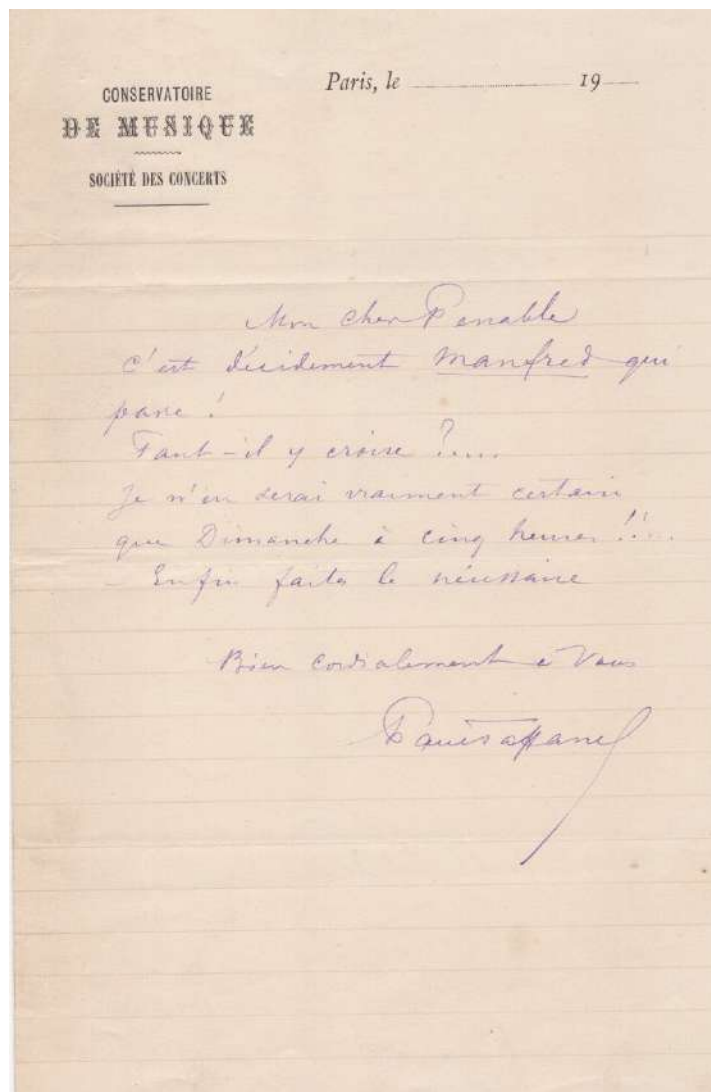 CONSERVATOIRE
DE MUSIQUE
SOCIÉTÉ DES CONCERTS
Paris, le 19
Mon cher Penable
c'est décidement Manfred qui
passe !
Faut-il y croire ?....
Je n'en serai vraiment certain
que Dimanche à cinq heures !!...
Enfin faites le nécessaire
Bien cordialement à Vous
Paul Taffanel